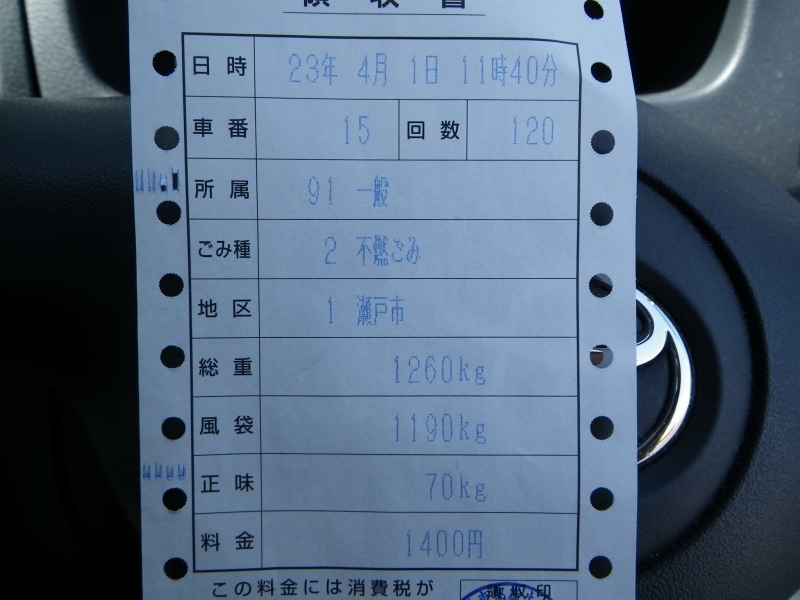 領収書
日時 23年 4月 1日 11時40分
車番 15 回数 120
所属 91 一般
ごみ種 2 不燃ごみ
地区 1 瀬戸市
総重 1260kg
風袋 1190kg
正味 70kg
料金 1400円
この料金には消費税が
領収印